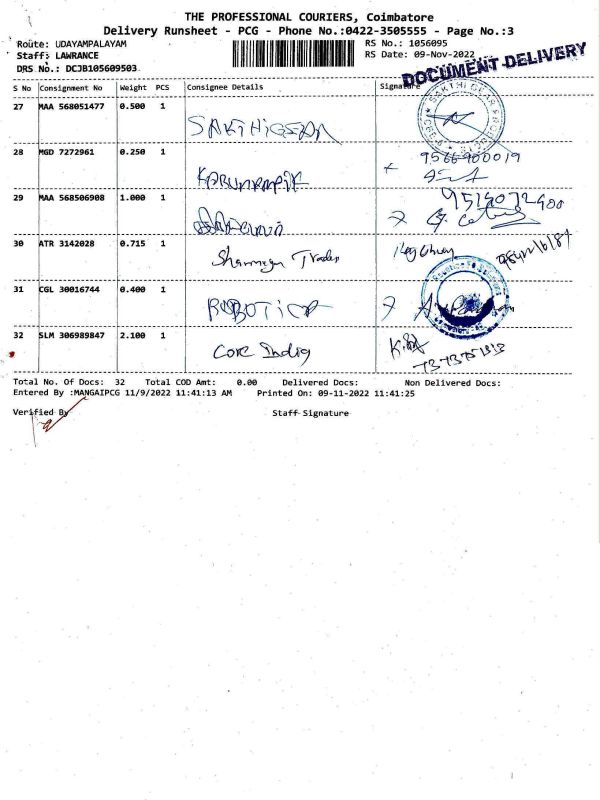 THE PROFESSIONAL COURIERS, Coimbatore
Delivery Runsheet - PCG - Phone No.:0422-3505555 - Page No.:3
Route: UDAYAMPALAYAM RS No.: 1056095
Staff: LAWRANCE RS Date: 09-Nov-2022
DRS No.: DCJB105609503
DOCUMENT DELIVERY
S No Consignment No Weight PCS Consignee Details Signature
27 MAA 568051477 0.500 1
SAKTHIGEAR
28 MGD 7272961 0.250 1
9566900019
29 MAA 568506908 1.000 1
30 ATR 3142028 0.715 1 Shanmuga Trades
31 CGL 30016744 0.400 1
ROBOTICA
32 SLM 306989847 2.100 1
Core India
Total No. Of Docs: 32 Total COD Amt: 0.00 Delivered Docs: Non Delivered Docs:
Entered By :MANGAIPCG 11/9/2022 11:41:13 AM Printed On: 09-11-2022 11:41:25
Verified By Staff Signature